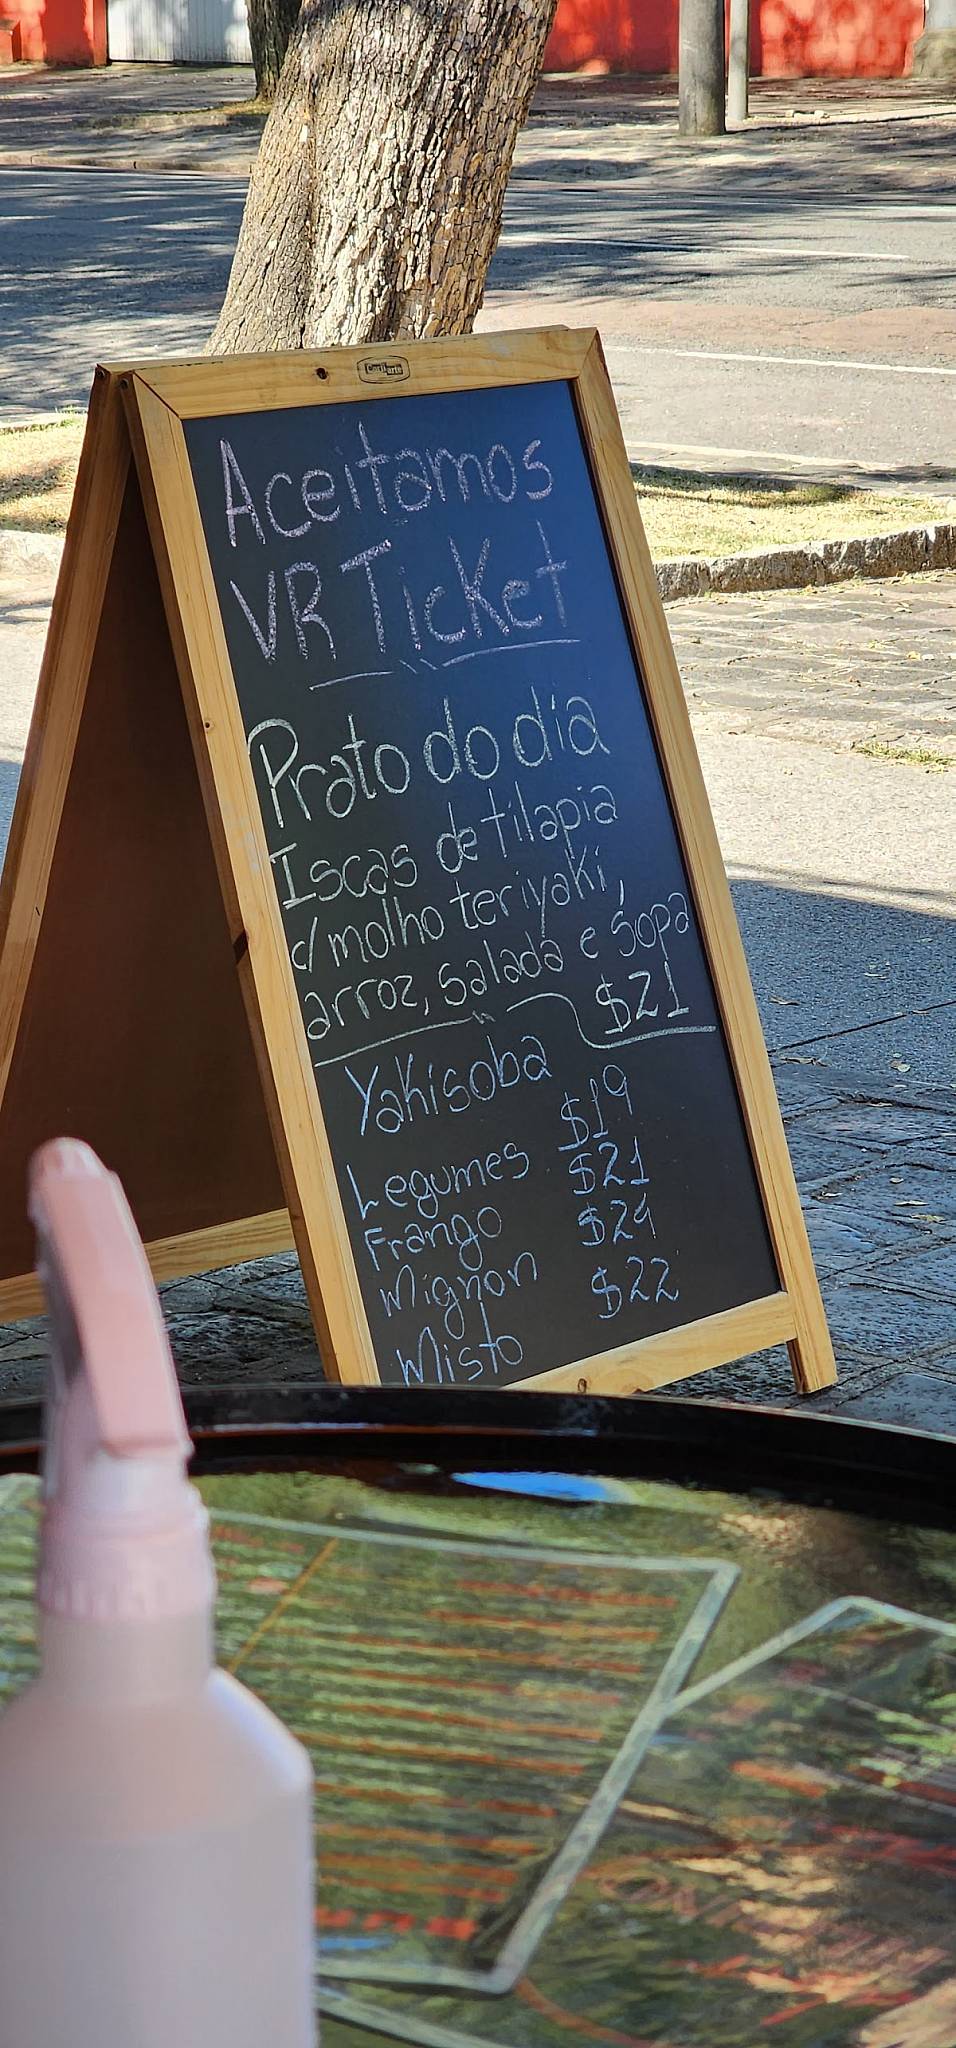 Aceitamos
VR Ticket
Prato do dia
Iscas de tilapia
c/ molho teriyaki,
arroz, salada e sopa
$21
Yakisoba
Legumes $19
Frango $21
Mignon $24
Misto $22